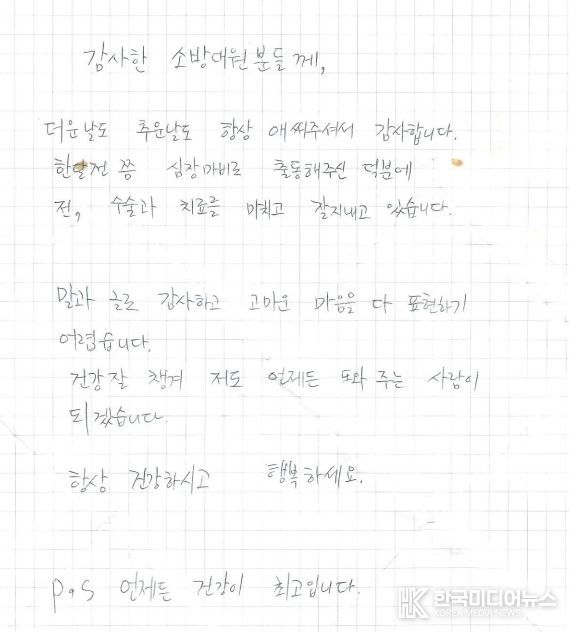 감사한 소방대원분들께,
더운날도 추운날도 항상 애써주셔서 감사합니다.
한달전 쯤 심장마비로 출동해주신 덕분에
전, 수술과 치료를 마치고 잘지내고 있습니다.
말과 글로 감사하고 고마운 마음을 다 표현하기
어렵습니다.
건강 잘 챙겨 저도 언제든 도와 주는 사람이
되겠습니다.
항상 건강하시고 행복하세요.
p.s 언제든 건강이 최고입니다.
한국미디어뉴스
KOREA MEDIA NEWS